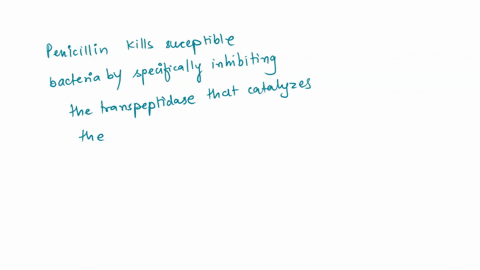 Penicillin kills suceptible
bacteria by specifically inhibiting
the transpeptidase that catalyzes
the